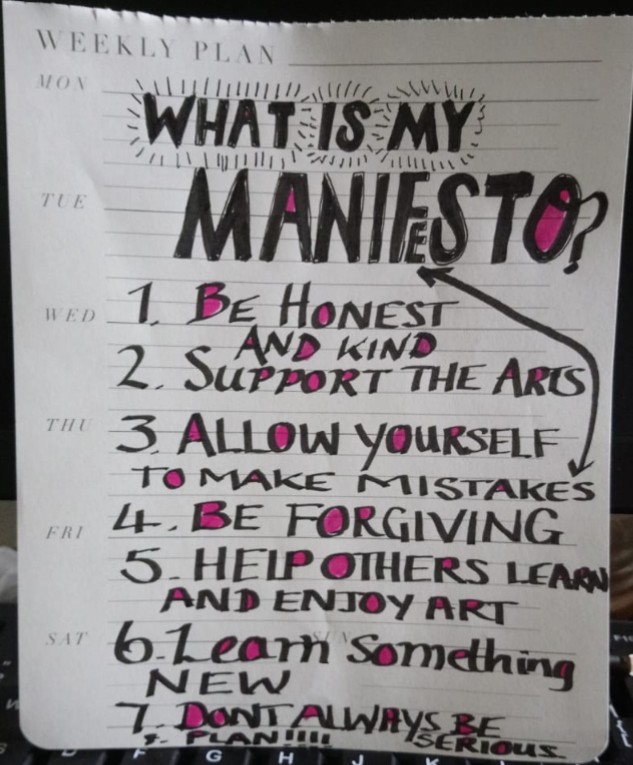 WEEKLY PLAN
MON
WHAT IS MY
TUE
MANIFESTO?
WED
1. BE HONEST
AND KIND
2. SUPPORT THE ARTS
THU
3. ALLOW YOURSELF
TO MAKE MISTAKES
FRI
4. BE FORGIVING
5. HELP OTHERS LEARN
AND ENJOY ART
SAT
SUN
6. Learn Something
NEW
7. DONT ALWAYS BE
SERIOUS
8. PLAN!!!!